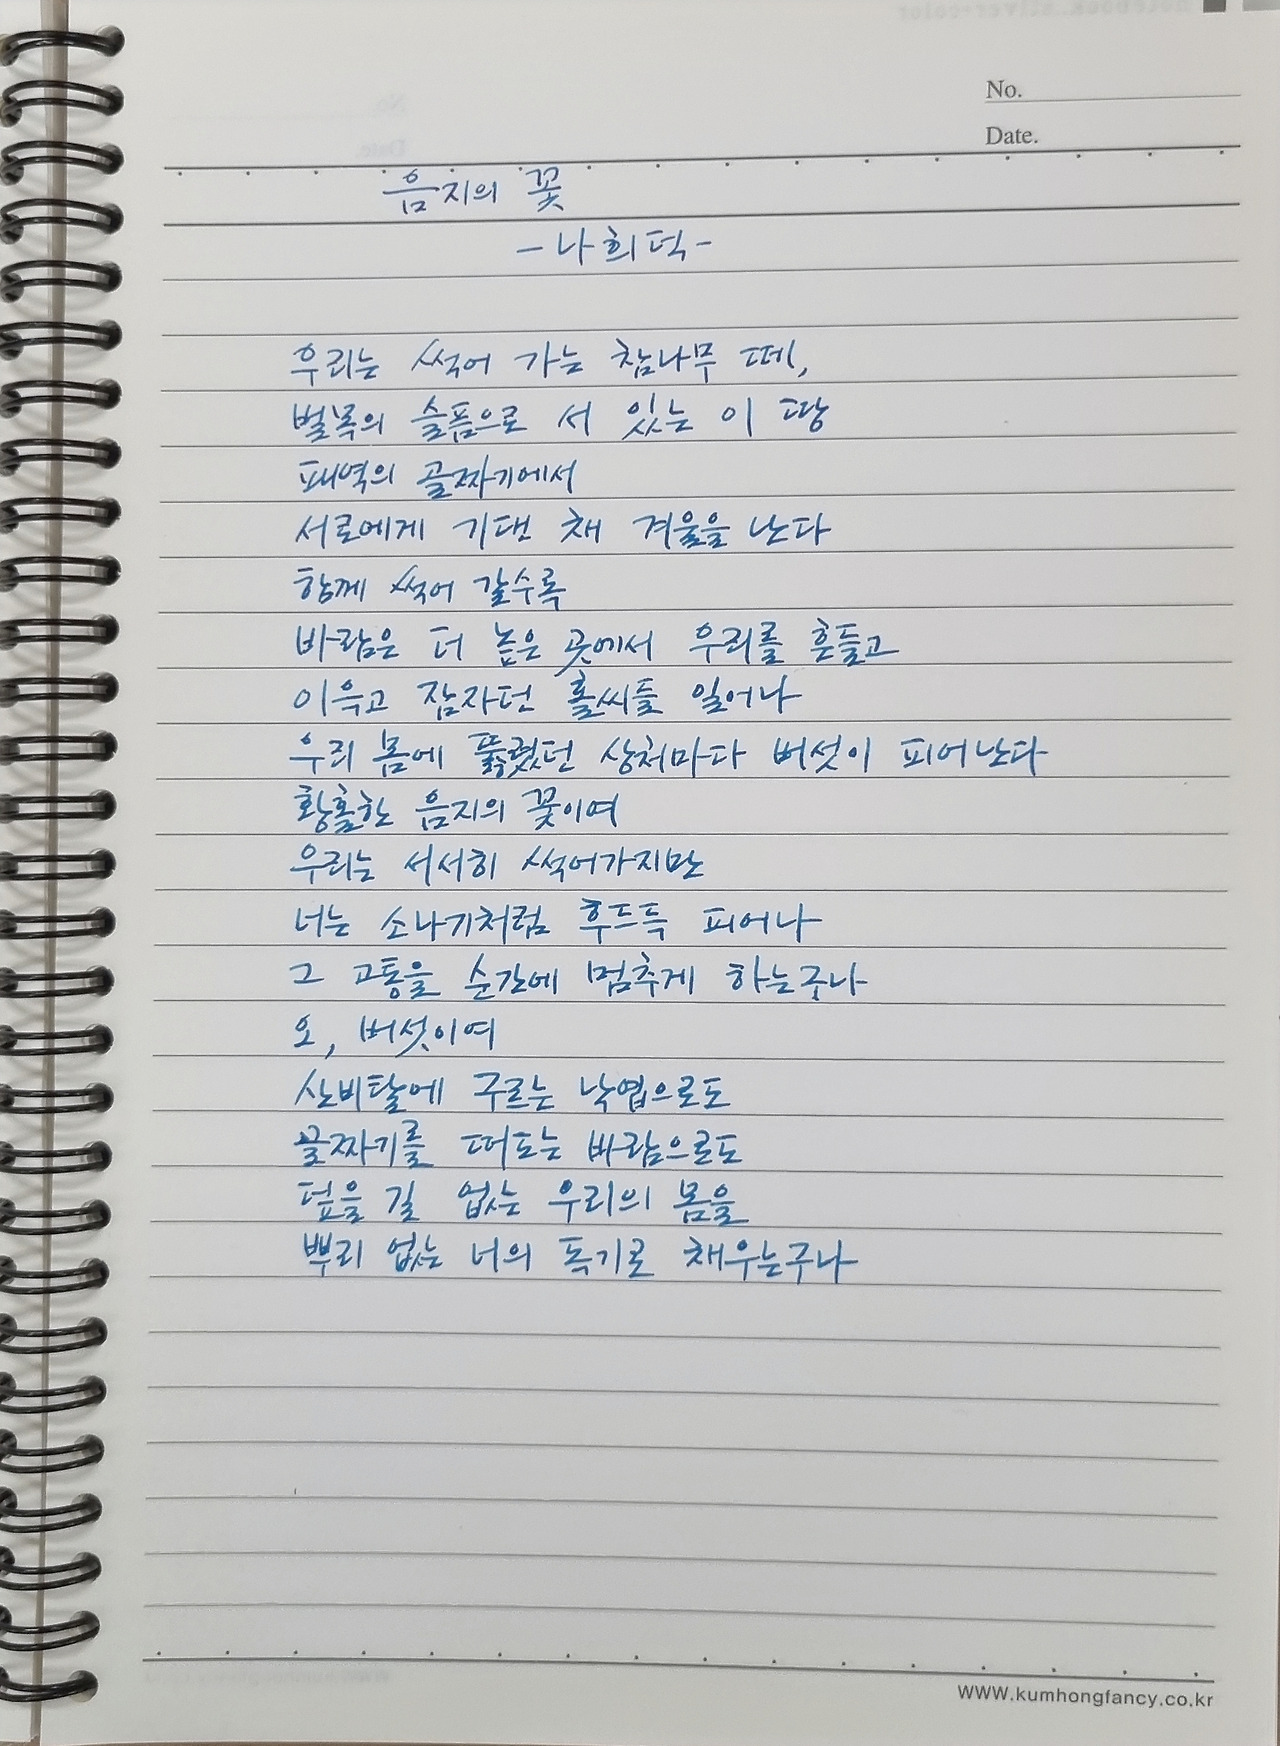 No.
Date.
음지의 꽃
- 나희덕 -
우리는 썩어 가는 참나무 떼,
벌목의 슬픔으로 서 있는 이 땅
패역의 골짜기에서
서로에게 기댄 채 겨울을 난다
함께 썩어 갈수록
바람은 더 높은 곳에서 우리를 흔들고
이윽고 잠자던 홀씨들 일어나
우리 몸에 뚫렸던 상처마다 버섯이 피어난다
황홀한 음지의 꽃이여
우리는 서서히 썩어가지만
너는 소나기처럼 후드득 피어나
그 고통을 순간에 멈추게 하는구나
오, 버섯이여
산비탈에 구르는 낙엽으로도
골짜기를 떠도는 바람으로도
덮을 길 없는 우리의 몸을
뿌리 없는 너의 독기로 채우는구나
WWW.kumhongfancy.co.kr